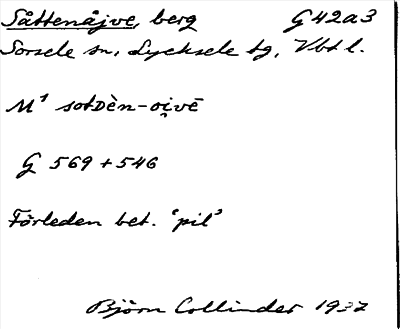 Såttenåjve, berg G 42a3
Sorsele sn, Lycksele tg, Vbt l.
M¹ sotDèn-oi̭vē
G 569 + 546
Förleden bet. ‘pil’
Björn Collinder 1937